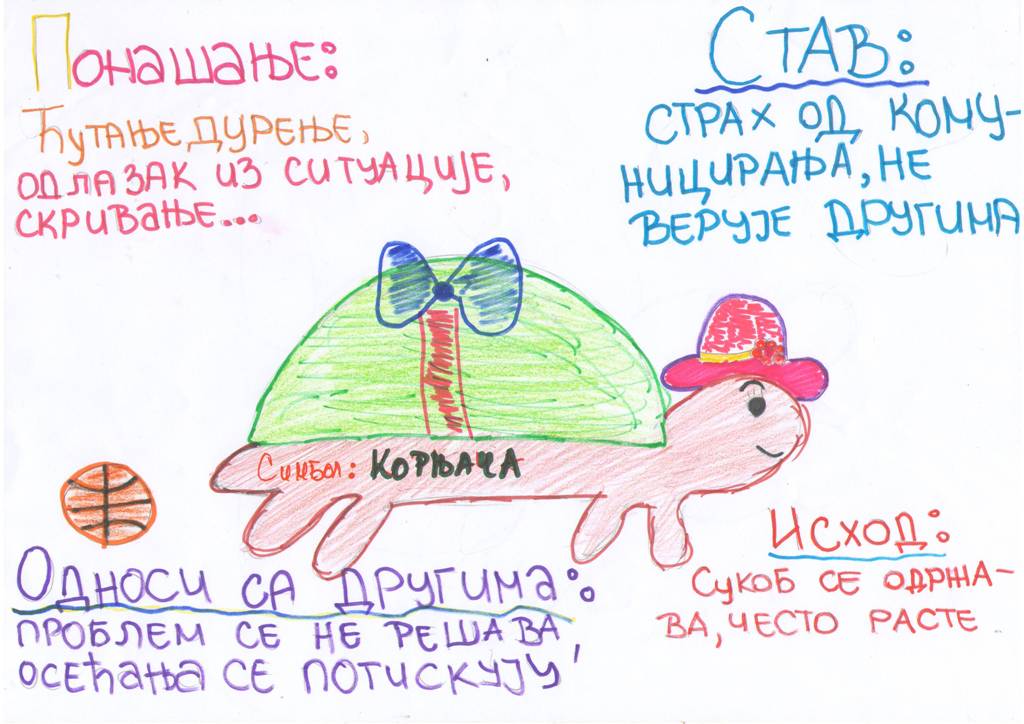 Понашање:
Ћутање, дурење,
одлазак из ситуације,
скривање...
Став:
страх од кому-
ницирања, не
верује другима
Симбол: Корњача
Односи са другима:
проблем се не решава,
осећања се потискују
Исход:
Сукоб се одржа-
ва, често расте